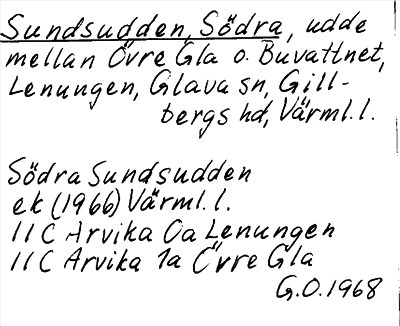 Sundsudden, Södra, udde
mellan Övre Gla o. Buvattnet,
Lenungen, Glava sn, Gill-
bergs hd, Värml. l.
Södra Sundsudden
ek (1966) Värml. l.
11 C Arvika 0a Lenungen
11 C Arvika 1a Övre Gla
G.O. 1968